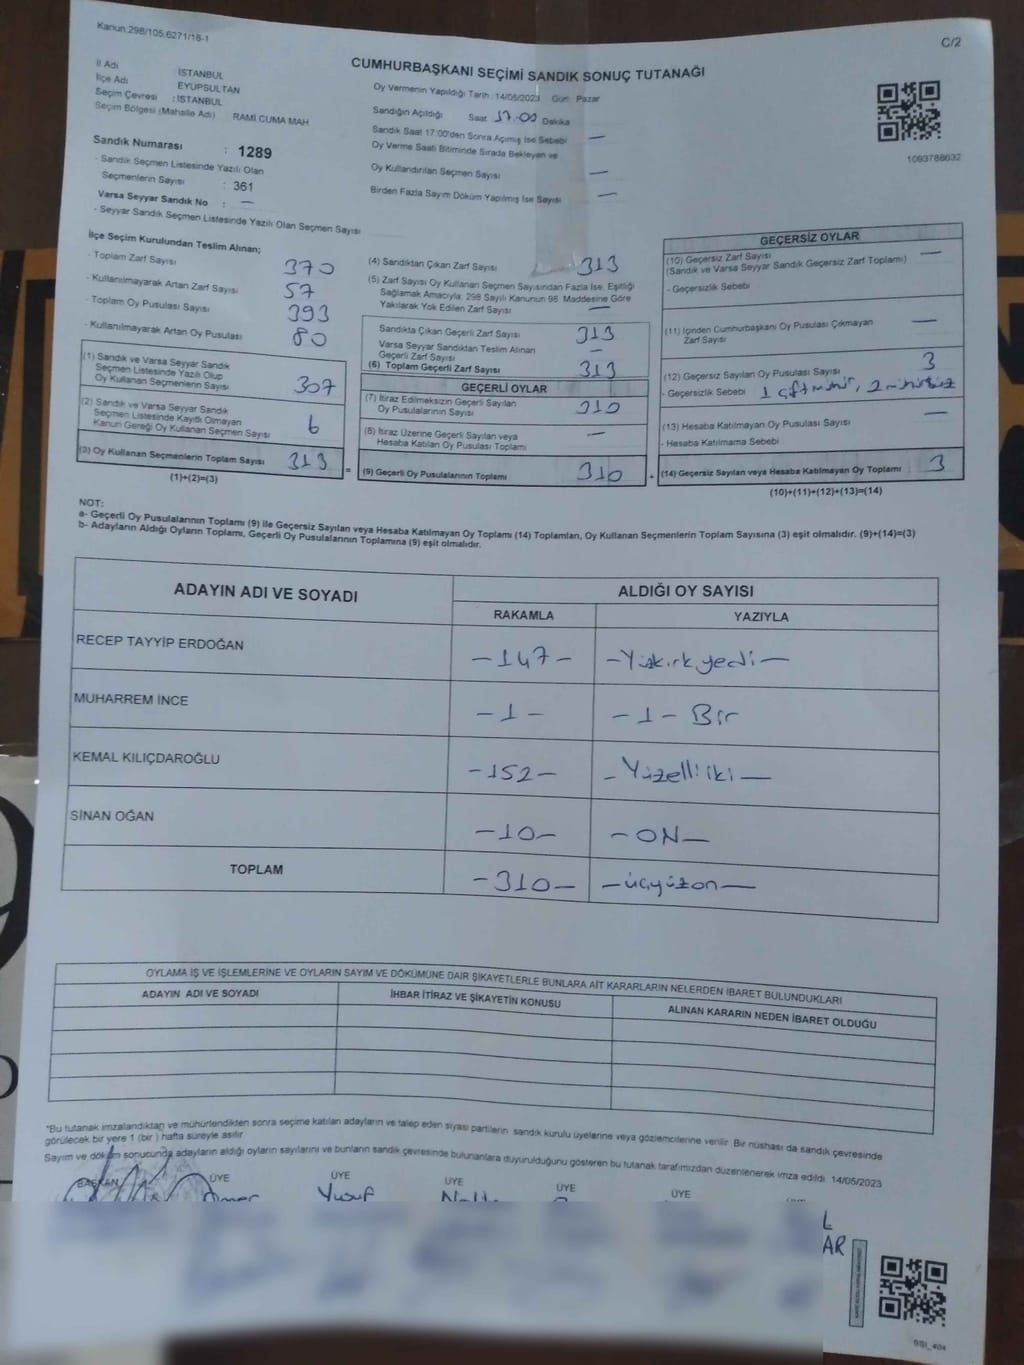 Kanun:298/105,6271/18-1
C/2
CUMHURBAŞKANI SEÇİMİ SANDIK SONUÇ TUTANAĞI
İl Adı İSTANBUL
İlçe Adı EYÜPSULTAN
Seçim Çevresi : İSTANBUL
Seçim Bölgesi (Mahalle Adı) RAMİ CUMA MAH
Sandık Numarası : 1289
- Sandık Seçmen Listesinde Yazılı Olan
Seçmenlerin Sayısı : 361
Varsa Seyyar Sandık No : —
- Seyyar Sandık Seçmen Listesinde Yazılı Olan Seçmen Sayısı
Oy Vermenin Yapıldığı Tarih : 14/05/2023 Gün: Pazar
Sandığın Açıldığı Saat 17.00 Dakika
Sandık Saat 17:00'den Sonra Açılmış İse Sebebi —
Oy Verme Saati Bitiminde Sırada Bekleyen ve
Oy Kullandırılan Seçmen Sayısı —
Birden Fazla Sayım Döküm Yapılmış İse Sayısı —
1093788632
İlçe Seçim Kurulundan Teslim Alınan;
- Toplam Zarf Sayısı 370
- Kullanılmayarak Artan Zarf Sayısı 57
- Toplam Oy Pusulası Sayısı 393
- Kullanılmayarak Artan Oy Pusulası 80
(1) Sandık ve Varsa Seyyar Sandık
Seçmen Listesinde Yazılı Olup
Oy Kullanan Seçmenlerin Sayısı 307
(2) Sandık ve Varsa Seyyar Sandık
Seçmen Listesinde Kayıtlı Olmayan
Kanun Gereği Oy Kullanan Seçmen Sayısı 6
(3) Oy Kullanan Seçmenlerin Toplam Sayısı 313 =
(1)+(2)=(3)
(4) Sandıktan Çıkan Zarf Sayısı 313
(5) Zarf Sayısı Oy Kullanan Seçmen Sayısından Fazla İse, Eşitliği
Sağlamak Amacıyla; 298 Sayılı Kanunun 98. Maddesine Göre
Yakılarak Yok Edilen Zarf Sayısı —
Sandıkta Çıkan Geçerli Zarf Sayısı 313
Varsa Seyyar Sandıktan Teslim Alınan
Geçerli Zarf Sayısı —
(6) Toplam Geçerli Zarf Sayısı 313
GEÇERLİ OYLAR
(7) İtiraz Edilmeksizin Geçerli Sayılan
Oy Pusulalarının Sayısı 310
(8) İtiraz Üzerine Geçerli Sayılan veya
Hesaba Katılan Oy Pusulası Toplamı —
(9) Geçerli Oy Pusulalarının Toplamı 310 +
GEÇERSİZ OYLAR
(10) Geçersiz Zarf Sayısı —
(Sandık ve Varsa Seyyar Sandık Geçersiz Zarf Toplamı)
- Geçersizlik Sebebi
(11) İçinden Cumhurbaşkanı Oy Pusulası Çıkmayan
Zarf Sayısı —
(12) Geçersiz Sayılan Oy Pusulası Sayısı 3
- Geçersizlik Sebebi 1 çift mühür, 2 mühürsüz
(13) Hesaba Katılmayan Oy Pusulası Sayısı —
- Hesaba Katılmama Sebebi
(14) Geçersiz Sayılan veya Hesaba Katılmayan Oy Toplamı 3
(10)+(11)+(12)+(13)=(14)
NOT:
a- Geçerli Oy Pusulalarının Toplamı (9) ile Geçersiz Sayılan veya Hesaba Katılmayan Oy Toplamı (14) Toplamları, Oy Kullanan Seçmenlerin Toplam Sayısına (3) eşit olmalıdır. (9)+(14)=(3)
b- Adayların Aldığı Oyların Toplamı, Geçerli Oy Pusulalarının Toplamına (9) eşit olmalıdır.
ADAYIN ADI VE SOYADI
ALDIĞI OY SAYISI
RAKAMLA YAZIYLA
RECEP TAYYİP ERDOĞAN —147— —Yüzkırkyedi—
MUHARREM İNCE —1— —1— Bir
KEMAL KILIÇDAROĞLU —152— —Yüzelliiki—
SİNAN OĞAN —10— —ON—
TOPLAM —310— —üçyüzon—
OYLAMA İŞ VE İŞLEMLERİNE VE OYLARIN SAYIM VE DÖKÜMÜNE DAİR ŞİKAYETLERLE BUNLARA AİT KARARLARIN NELERDEN İBARET BULUNDUKLARI
ADAYIN ADI VE SOYADI İHBAR İTİRAZ VE ŞİKAYETİN KONUSU ALINAN KARARIN NEDEN İBARET OLDUĞU
*Bu tutanak imzalandıktan ve mühürlendikten sonra seçime katılan adayların ve talep eden siyasi partilerin sandık kurulu üyelerine veya gözlemcilerine verilir. Bir nüshası da sandık çevresinde
görülecek bir yere 1 (bir ) hafta süreyle asılır.
Sayım ve döküm sonucunda adayların aldığı oyların sayılarını ve bunların sandık çevresinde bulunanlara duyurulduğunu gösteren bu tutanak tarafımızdan düzenlenerek imza edildi. 14/05/2023
BAŞKAN ÜYE ÜYE ÜYE ÜYE ÜYE
Ömer Yusuf
L
AR